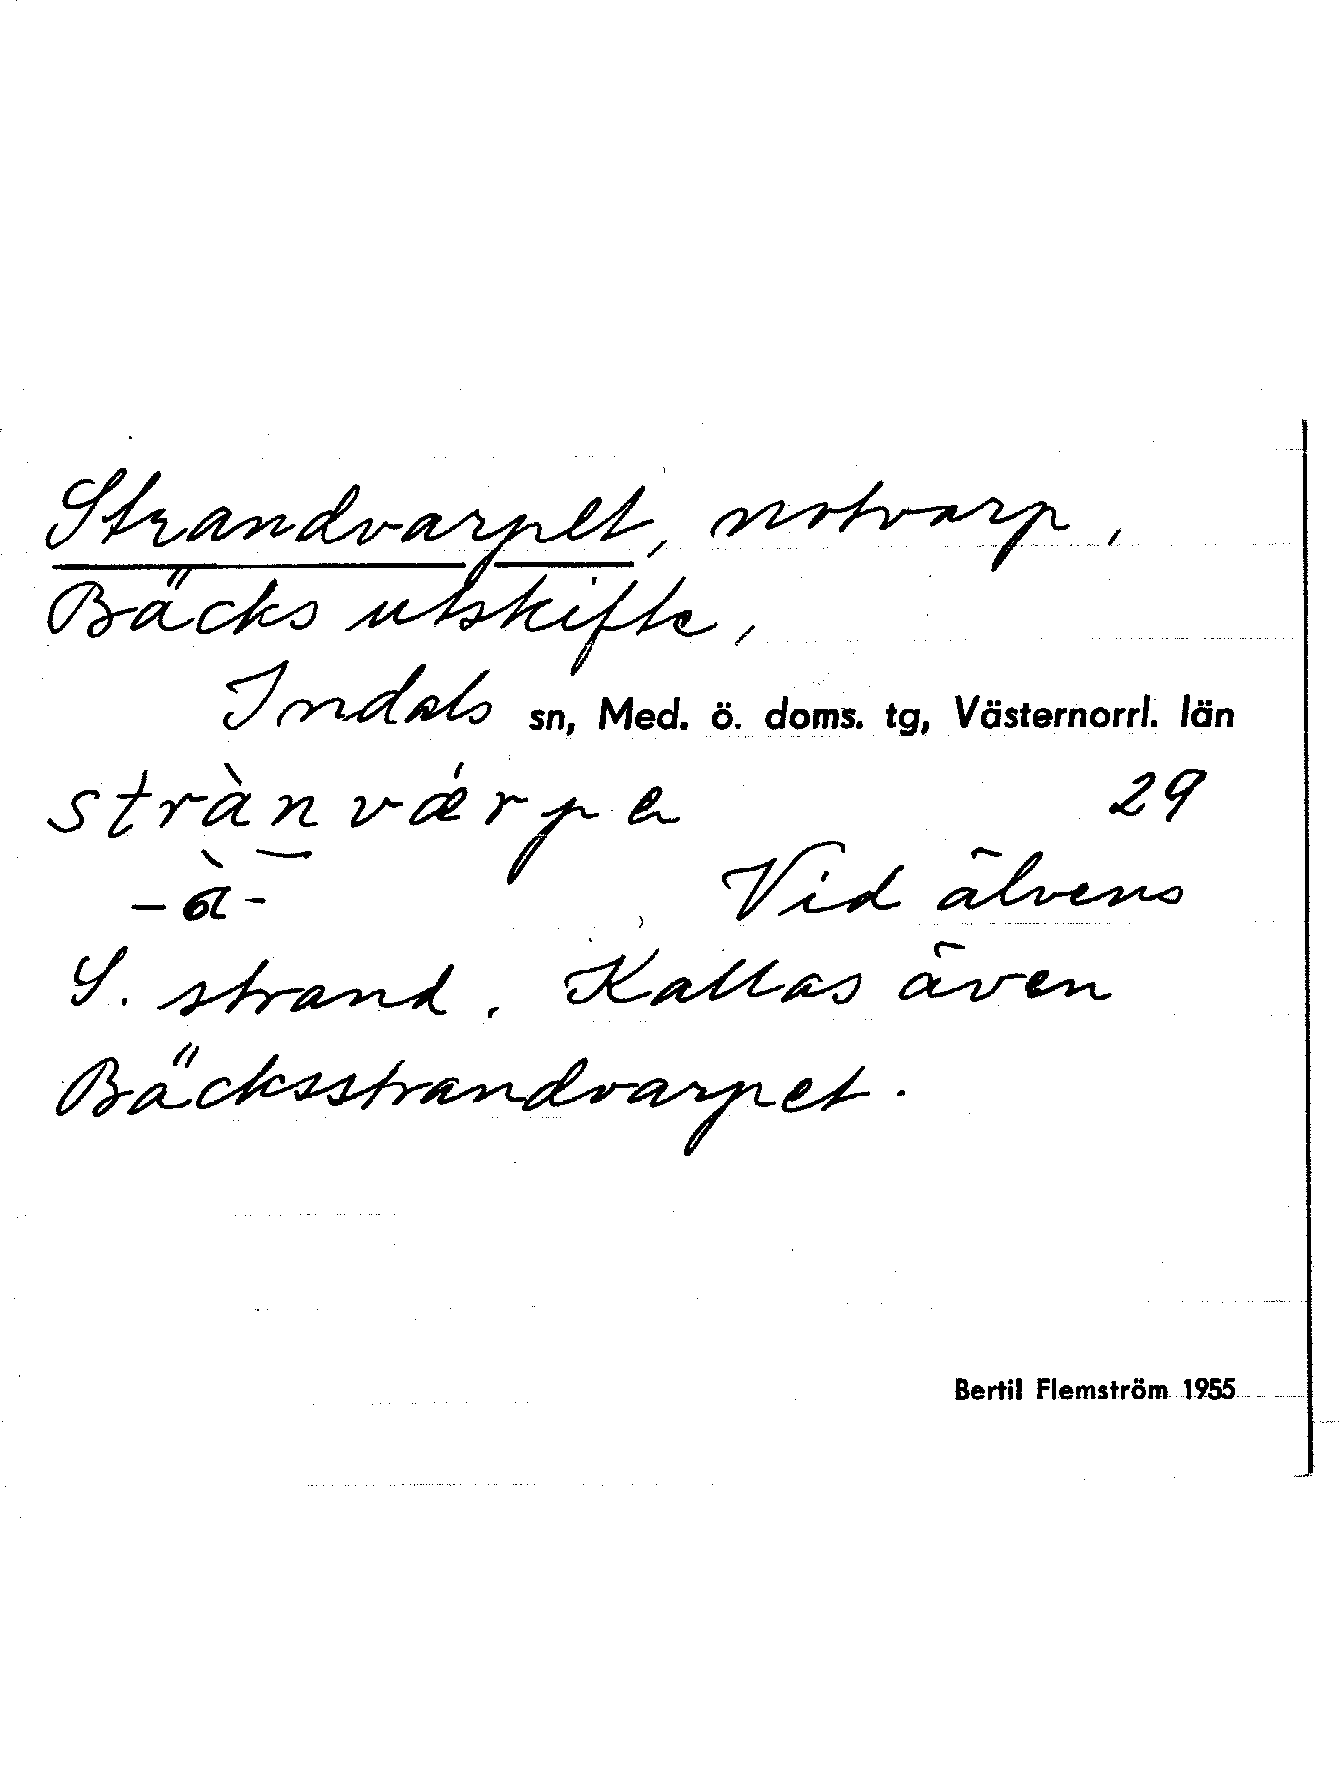 Strandvarpet, notvarp,
Bäcks utskifte,
Indals sn, Med. ö. doms. tg, Västernorrl. län
strànværpe 29
-à- Vid älvens
S. strand. Kallas även
Bäcksstrandvarpet.
Bertil Flemström 1955